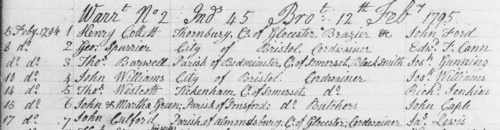 Warrt. No 2 Ind 45 Brot. 12th Feby 1795
5 Feby. 1794 1 Henry Collett Thornbury, Co. of Glocester Brazier &c John Ford
8 do. 2 Geo. Spurrier City of Bristol Cordwainer Edwd. T. Cann
do do. 3 Thos. Barwell Parish of Bedminster, C. of Somerset, Black Smith Jos. Gunning
10 do. 4 John Williams City of Bristol Cordwainer Jos. Williams
14 do 5 Thos. Westcott Tickenham, C. of Somerset do. Richd. Jenkins
15 do. 6 John & Martha Green; Parish of do. Butchers John Caple
17 do. 7 John Parish of Almondsbury; C. of Glocester; Cordwainer Jas. Lewis